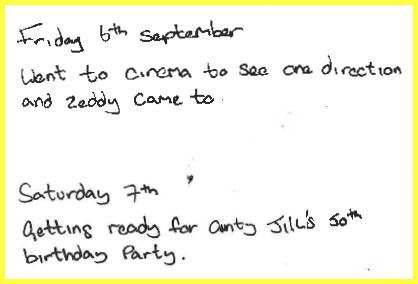 Friday 6th September
Went to cinema to see one direction
and zeddy came to.
Saturday 7th
Getting ready for anty Jill's 50th
birthday Party.